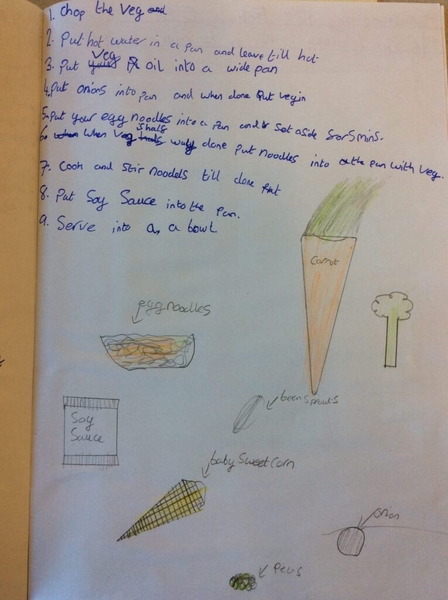 1. Chop the veg and
2. Put hot water in a pan and leave till hot
3. Put veg oil into a wide pan
4. Put onions into pan and when done put veg in
5. Put your egg noodles into a pan and set aside for 5 mins.
6. When veg half way done put noodles into the pan with veg.
7. Cook and stir noodels till done put
8. Put Soy Sauce into the pan.
9. Serve into a bowl
Carrot
egg noodles
been sprouts
Soy
Sauce
baby Sweetcorn
onion
Peas